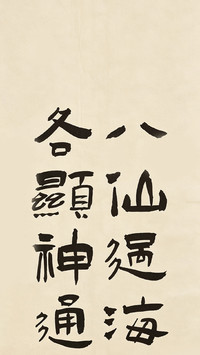 八仙過海
各顯神通